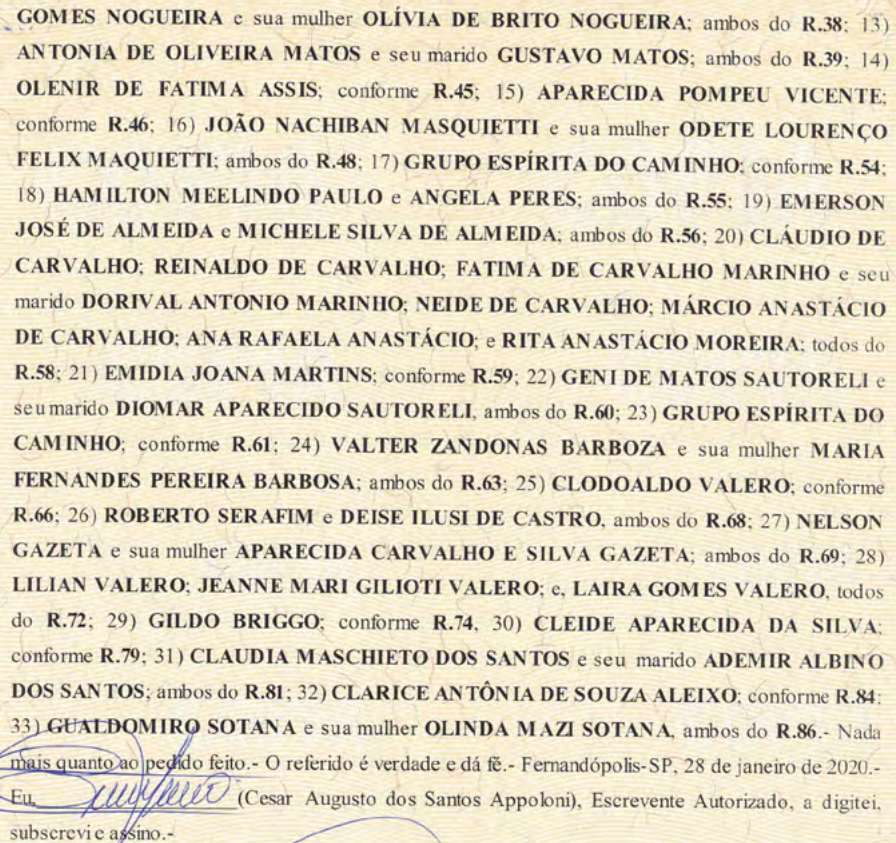 GOMES NOGUEIRA e sua mulher OLÍVIA DE BRITO NOGUEIRA; ambos do R.38; 13)
ANTONIA DE OLIVEIRA MATOS e seu marido GUSTAVO MATOS; ambos do R.39; 14)
OLENIR DE FATIMA ASSIS; conforme R.45; 15) APARECIDA POMPEU VICENTE;
conforme R.46; 16) JOÃO NACHIBAN MASQUIETTI e sua mulher ODETE LOURENÇO
FELIX MAQUIETTI; ambos do R.48; 17) GRUPO ESPÍRITA DO CAMINHO; conforme R.54;
18) HAMILTON MEELINDO PAULO e ANGELA PERES; ambos do R.55; 19) EMERSON
JOSÉ DE ALMEIDA e MICHELE SILVA DE ALMEIDA; ambos do R.56; 20) CLÁUDIO DE
CARVALHO; REINALDO DE CARVALHO; FATIMA DE CARVALHO MARINHO e seu
marido DORIVAL ANTONIO MARINHO; NEIDE DE CARVALHO; MÁRCIO ANASTÁCIO
DE CARVALHO; ANA RAFAELA ANASTÁCIO; e RITA ANASTÁCIO MOREIRA; todos do
R.58; 21) EMIDIA JOANA MARTINS; conforme R.59; 22) GENI DE MATOS SAUTORELI e
seu marido DIOMAR APARECIDO SAUTORELI, ambos do R.60; 23) GRUPO ESPÍRITA DO
CAMINHO; conforme R.61; 24) VALTER ZANDONAS BARBOZA e sua mulher MARIA
FERNANDES PEREIRA BARBOSA; ambos do R.63; 25) CLODOALDO VALERO; conforme
R.66; 26) ROBERTO SERAFIM e DEISE ILUSI DE CASTRO, ambos do R.68; 27) NELSON
GAZETA e sua mulher APARECIDA CARVALHO E SILVA GAZETA; ambos do R.69; 28)
LILIAN VALERO; JEANNE MARI GILIOTI VALERO; e, LAIRA GOMES VALERO, todos
do R.72; 29) GILDO BRIGGO; conforme R.74, 30) CLEIDE APARECIDA DA SILVA;
conforme R.79; 31) CLAUDIA MASCHIETO DOS SANTOS e seu marido ADEMIR ALBINO
DOS SANTOS; ambos do R.81; 32) CLARICE ANTÔNIA DE SOUZA ALEIXO; conforme R.84;
33) GUALDOMIRO SOTANA e sua mulher OLINDA MAZI SOTANA, ambos do R.86.- Nada
mais quanto ao pedido feito.- O referido é verdade e dá fê.- Fernandópolis-SP, 28 de janeiro de 2020.-
Eu, (Cesar Augusto dos Santos Appoloni), Escrevente Autorizado, a digitei,
subscrevi e assino.-